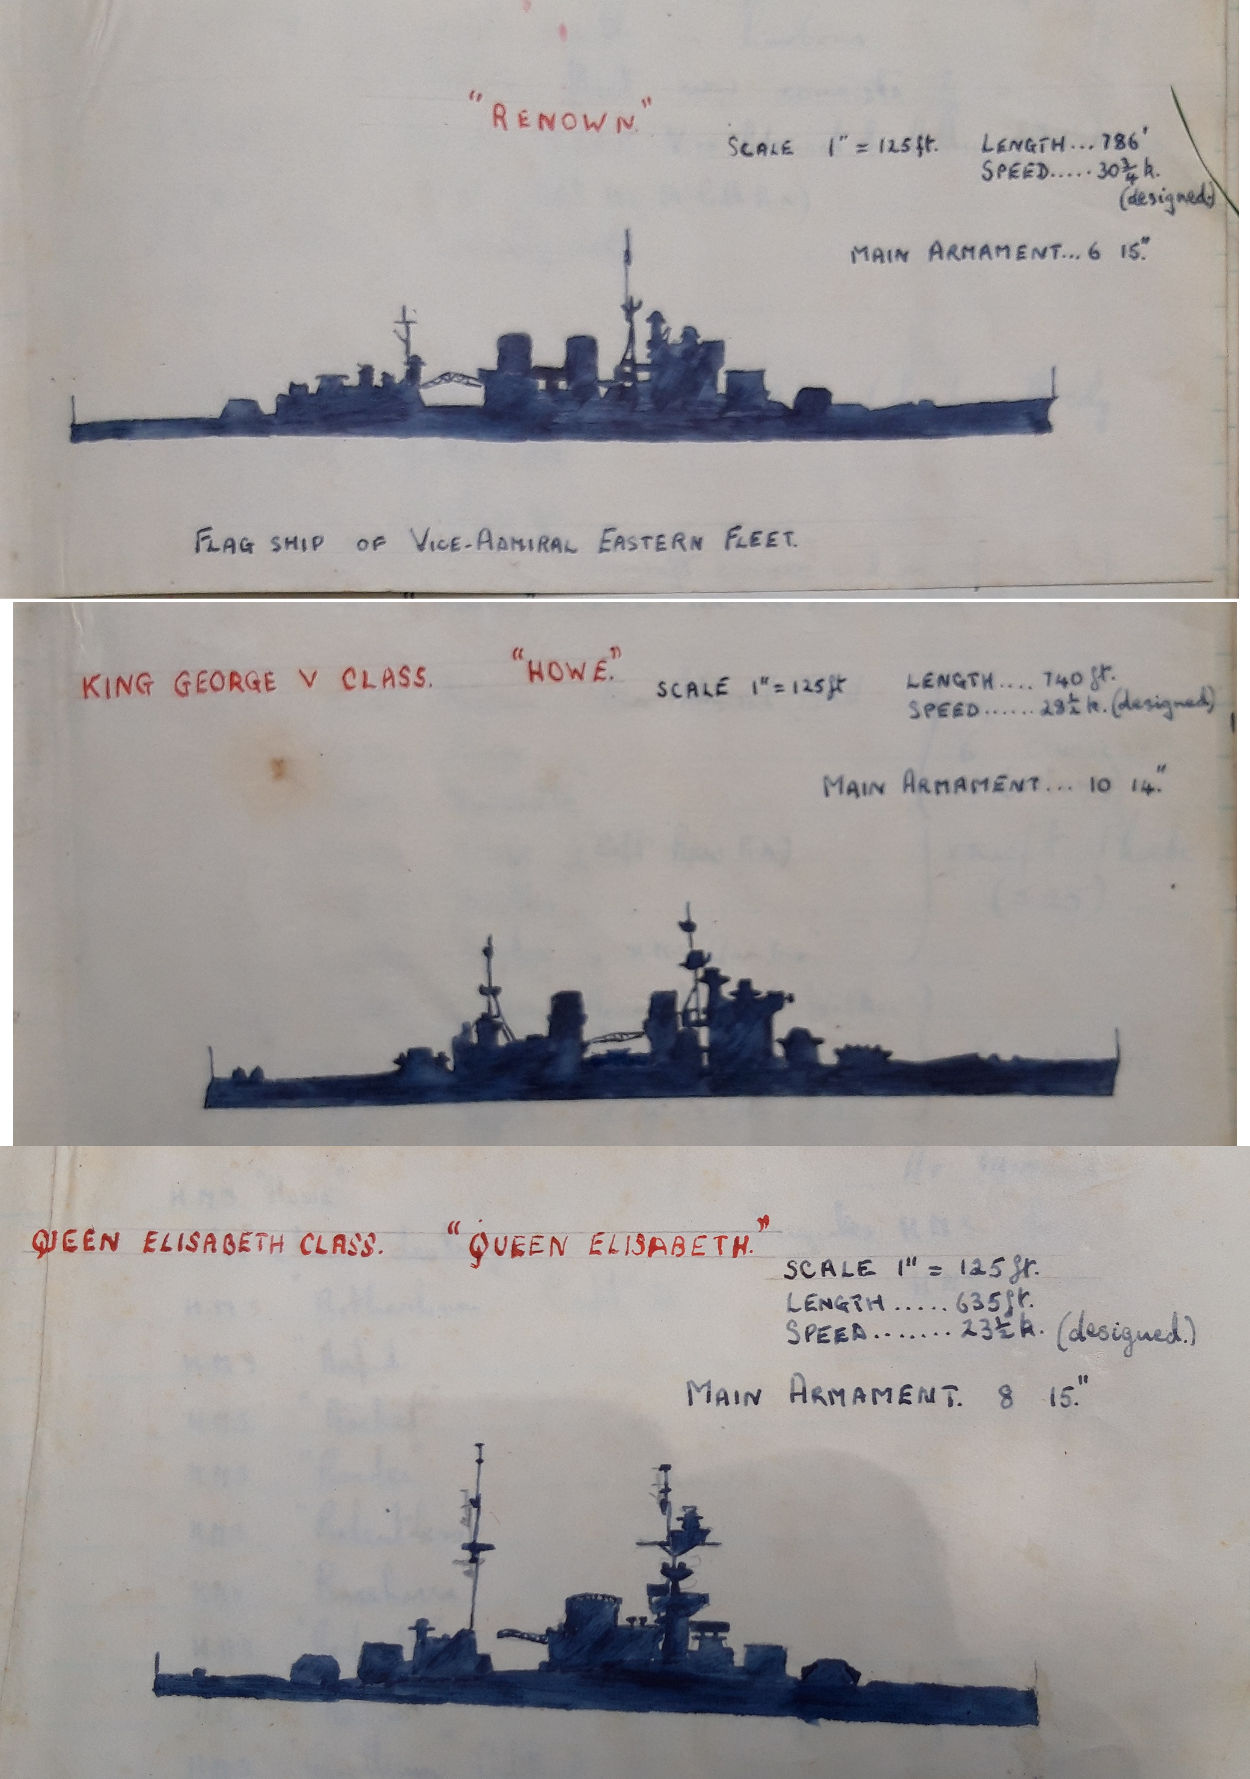 "RENOWN."
SCALE 1" = 125 ft.
LENGTH... 786'
SPEED..... 30¾ k.
(designed.)
MAIN ARMAMENT... 6 15."
FLAG SHIP OF VICE-ADMIRAL EASTERN FLEET.
KING GEORGE V CLASS. "HOWE."
SCALE 1" = 125 ft
LENGTH.... 740 ft.
SPEED...... 28½ k. (designed)
MAIN ARMAMENT... 10 14."
QUEEN ELISABETH CLASS. "QUEEN ELISABETH."
SCALE 1" = 125 ft.
LENGTH ..... 635 ft.
SPEED....... 23½ k. (designed.)
MAIN ARMAMENT. 8 15."